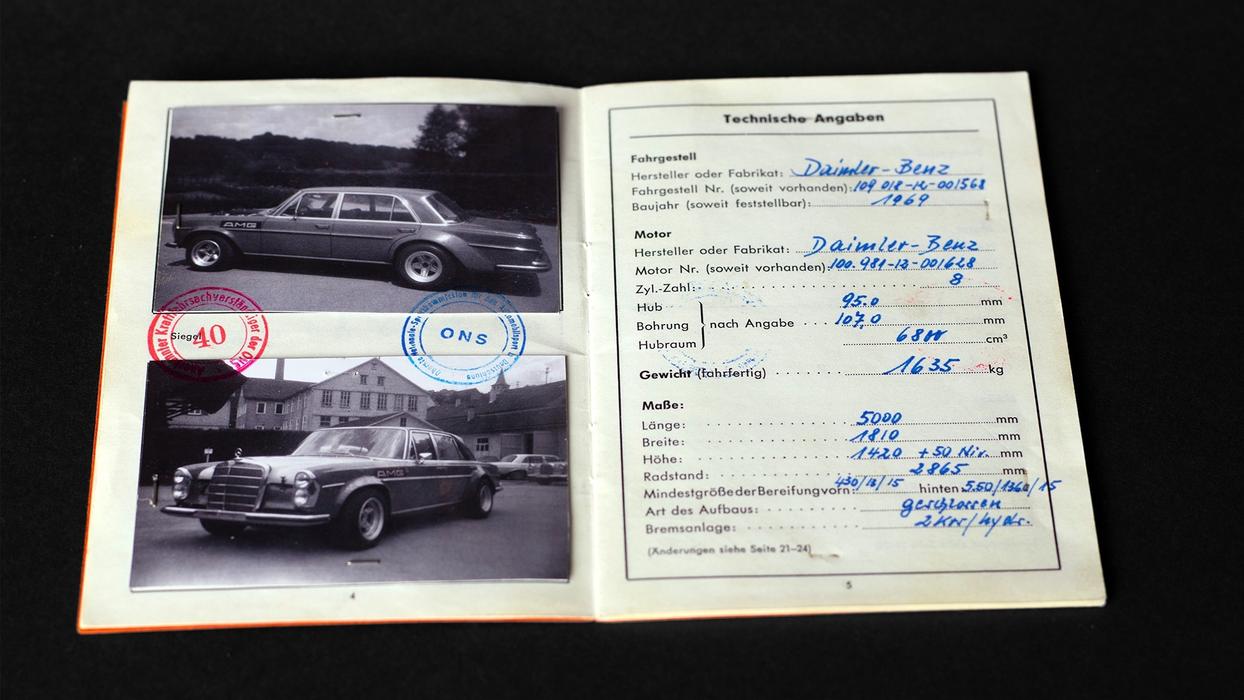 AMG
Siegel
40
ONS
AMG
4
Technische Angaben
Fahrgestell
Hersteller oder Fabrikat: Daimler-Benz
Fahrgestell Nr. (soweit vorhanden): 109 018-12-001568
Baujahr (soweit feststellbar): 1969
Motor
Hersteller oder Fabrikat: Daimler-Benz
Motor Nr. (soweit vorhanden): 100.981-12-001628
Zyl.-Zahl: 8
Hub 95.0 mm
Bohrung nach Angabe 107,0 mm
Hubraum cm³
Gewicht (fahrfertig) 1635 kg
Maße:
Länge: 5000 mm
Breite: 1810 mm
Höhe: 1420 +50 Niv. mm
Radstand: 2865 mm
Mindestgröße der Bereifung vorn: 430/13/15 hinten 5.50/1360/15
Art des Aufbaus: geschlossen
Bremsanlage: 2 Krs/hydr.
(Änderungen siehe Seite 21–24)
5